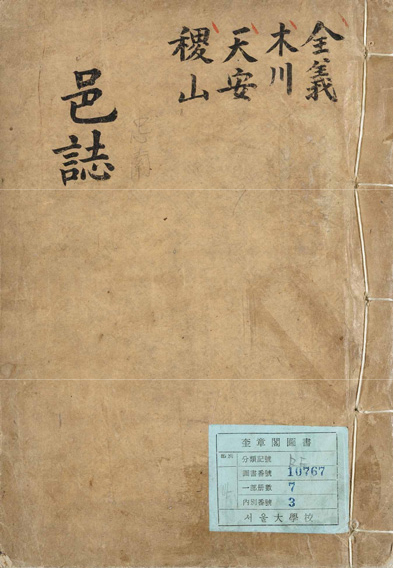 全義
木川
天安
稷山
邑誌
奎章閣圖書
分類記號
圖書番號 10767
一部册數 7
內別番號 3
서울大學校